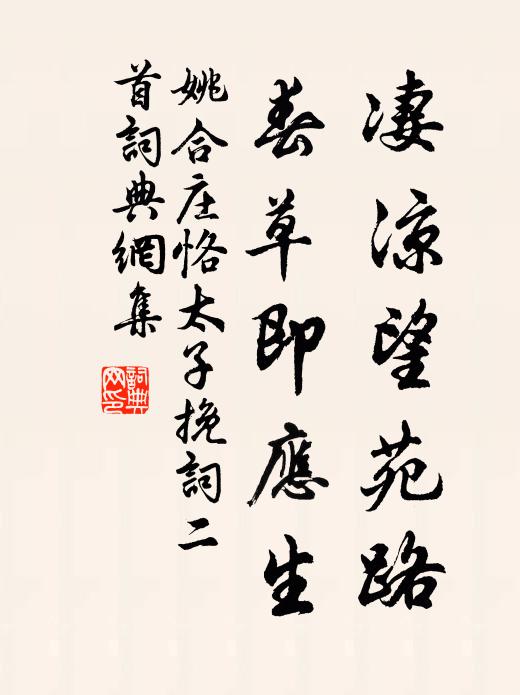 凄凉望苑路
春草即應生
姚合庄恪太子挽詞二
首詞典網集
詞典
网印